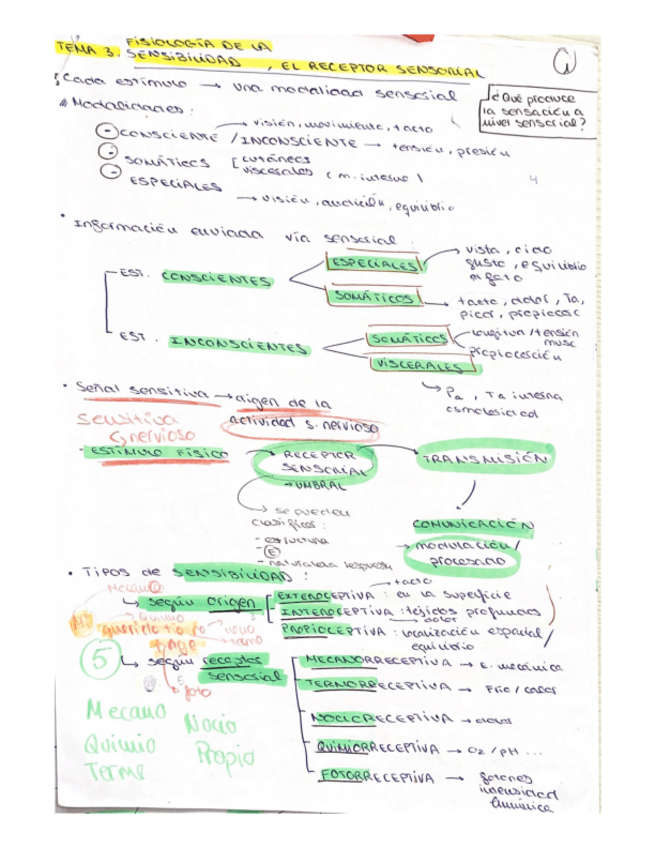 TEMA 3. FISIOLOGÍA DE LA SENSIBILIDAD, EL RECEPTOR SENSORIAL
1
Cada estímulo → una modalidad sensorial
¿Qué produce
la sensación a
nivel sensorial?
Modalidades:
→ visión, movimiento, tacto
CONSCIENTE / INCONSCIENTE → tensión, presión
SOMÁTICOS [ cutáneos
viscerales ( m. interno )
ESPECIALES
→ visión, audición, equilibrio
4
• Información enviada vía sensorial:
EST. CONSCIENTES
ESPECIALES
→ vista, oído
gusto, equilibrio
olfato
SOMÁTICOS
→ tacto, dolor, Ta,
picor, propiocec
EST. INCONSCIENTES
SOMÁTICOS
longitud/tensión
musc
propiocepción
VISCERALES
→ Pa, Ta interna
osmolaridad
• Señal sensitiva → origen de la
actividad s. nervioso
Sensitiva
↳ nervioso
- ESTÍMULO FÍSICO
RECEPTOR
SENSORIAL
→ UMBRAL
TRANSMISIÓN
→ se pueden
clasificar:
- estructura
- E
- naturaleza respuesta
COMUNICACIÓN
→ modulación/
procesado
• TIPOS de SENSIBILIDAD:
→ tacto
Mecano
↳ según origen
EXTEROCEPTIVA: en la superficie
INTEROCEPTIVA: tejidos profundos
→ dolor
PROPIOCEPTIVA: localización espacial/
equilibrio
Quimio
querido tio
noci
termo
foto
5
↳ según receptor
sensorial
MECANORRECEPTIVA → E. mecánica
TERMORRECEPTIVA → Frío / calor
NOCICRECEPTIVA → dolor
QUIMIORRECEPTIVA → O2 / pH ...
FOTORRECEPTIVA → fotones
intensidad
lumínica
Mecano
Nocio
Quimio
Propio
Termo